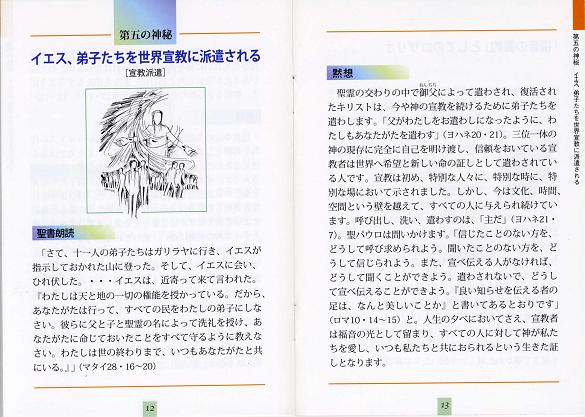 第五の神秘
イエス、弟子たちを世界宣教に派遣される
［宣教派遣］
聖書朗読
「さて、十一人の弟子たちはガリラヤに行き、イエスが
指示しておかれた山に登った。そして、イエスに会い、
ひれ伏した。・・・イエスは、近寄って来て言われた。
『わたしは天と地の一切の権能を授かっている。だから、
あなたがたは行って、すべての民をわたしの弟子にしな
さい。彼らに父と子と聖霊の名によって洗礼を授け、あ
なたがたに命じておいたことをすべて守るように教えな
さい。わたしは世の終わりまで、いつもあなたがたと共
にいる。』」（マタイ28・16〜20）
12
黙想
おんちち
聖霊の交わりの中で御父によって遣わされ、復活され
たキリストは、今や神の宣教を続けるために弟子たちを
遣わします。「父がわたしをお遣わしになったように、わ
たしもあなたがたを遣わす」（ヨハネ20・21）。三位一体の
神の現存に完全に自己を明け渡し、信頼をおいている宣
教者は世界へ希望と新しい命の証しとして遣わされてい
る人です。宣教は初め、特別な人々に、特別な時に、特
別な場において示されました。しかし、今は文化、時間、
空間という壁を越えて、すべての人に与えられ続けてい
ます。呼び出し、洗い、遣わすのは、「主だ」（ヨハネ21・
7)。聖パウロは問いかけます。「信じたことのない方を、
どうして呼び求められよう。聞いたことのない方を、ど
うして信じられよう。また、宣べ伝える人がなければ、
どうして聞くことができよう。遣わされないで、どうし
て宣べ伝えることができよう。『良い知らせを伝える者の
足は、なんと美しいことか』と書いてあるとおりです」
（ロマ10・14〜15）と。人生の夕べにおいてさえ、宣教者
は福音の光として留まり、すべての人に対して神が私た
ちを愛し、いつも私たちと共におられるという生きた証
しとなります。
13
第五の神秘　イエス、弟子たちを世界宣教に派遣される